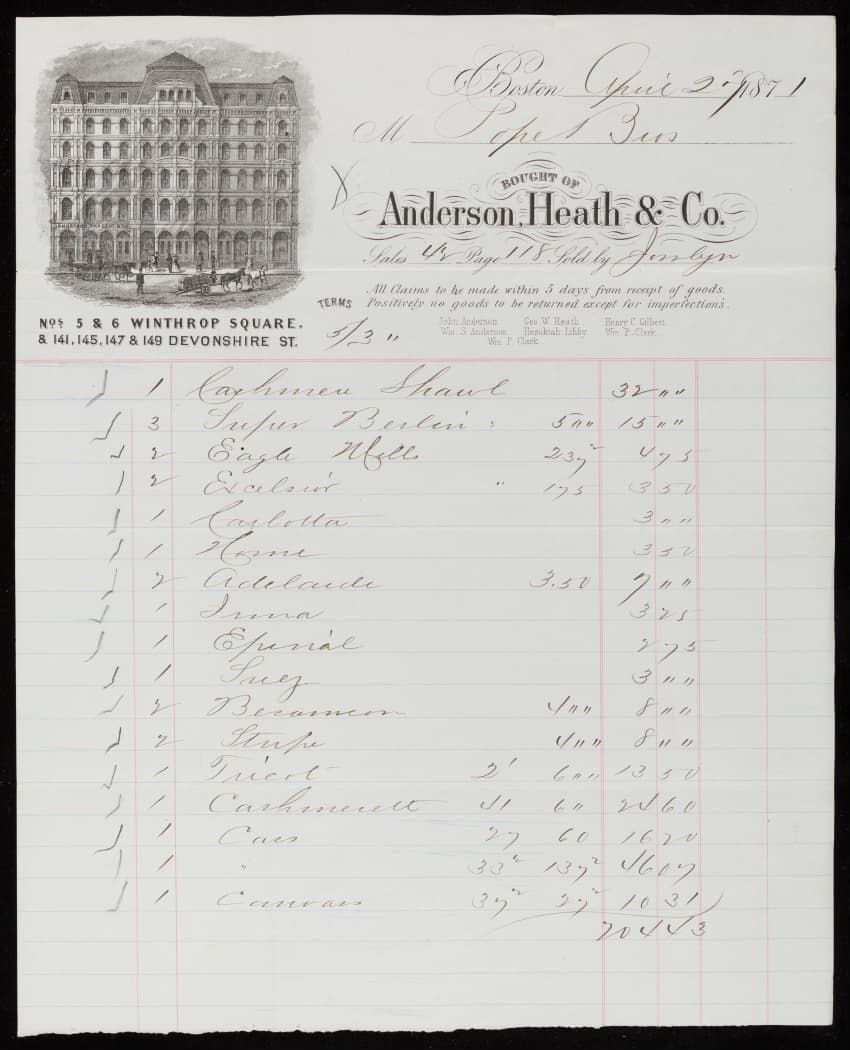 Boston April 27 1871
M Pope Bros
BOUGHT OF
Anderson, Heath & Co.
Sales 42 Page 118 Sold by Josslyn
All Claims to be made within 5 days from receipt of goods.
Positively no goods to be returned except for imperfections.
TERMS
5/3 "
John Anderson. Geo. W. Heath. Henry C. Gilbert.
Wm. S. Anderson. Hezekiah Libby. Wm. P. Clark.
Wm. P. Clark.
Nos. 5 & 6 WINTHROP SQUARE.
& 141, 145, 147 & 149 DEVONSHIRE ST.
1 Cashmere Shawl 32 " "
3 Super Berlin " 5 " " 15 " "
2 Eagle Mills 237² 4 75
2 Excelsior " 175 3 50
1 Carlotta 3 " "
1 Rome 3 50
2 Adelaide 3.50 7 " "
1 Irma 3 25
1 Epinal 2 75
1 Suez 3 " "
2 4 " " 8 " "
2 Stripe 4 " " 8 " "
1 Tricot 2' 6 " " 13 50
1 Cashmerett 41 6 " 24 60
1 Cass 27 60 16 20
1 " 33² 137² 46 07
1 Canvass 37² 27² 10 31
204 43